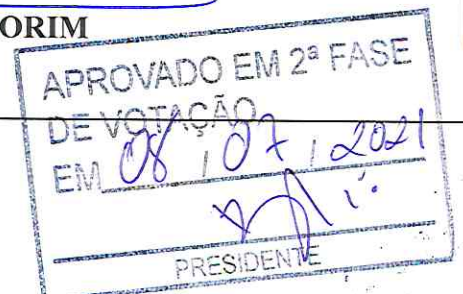 ORIM
APROVADO EM 2ª FASE
DE VOTAÇÃO
EM 08 / 07 / 2021
PRESIDENTE